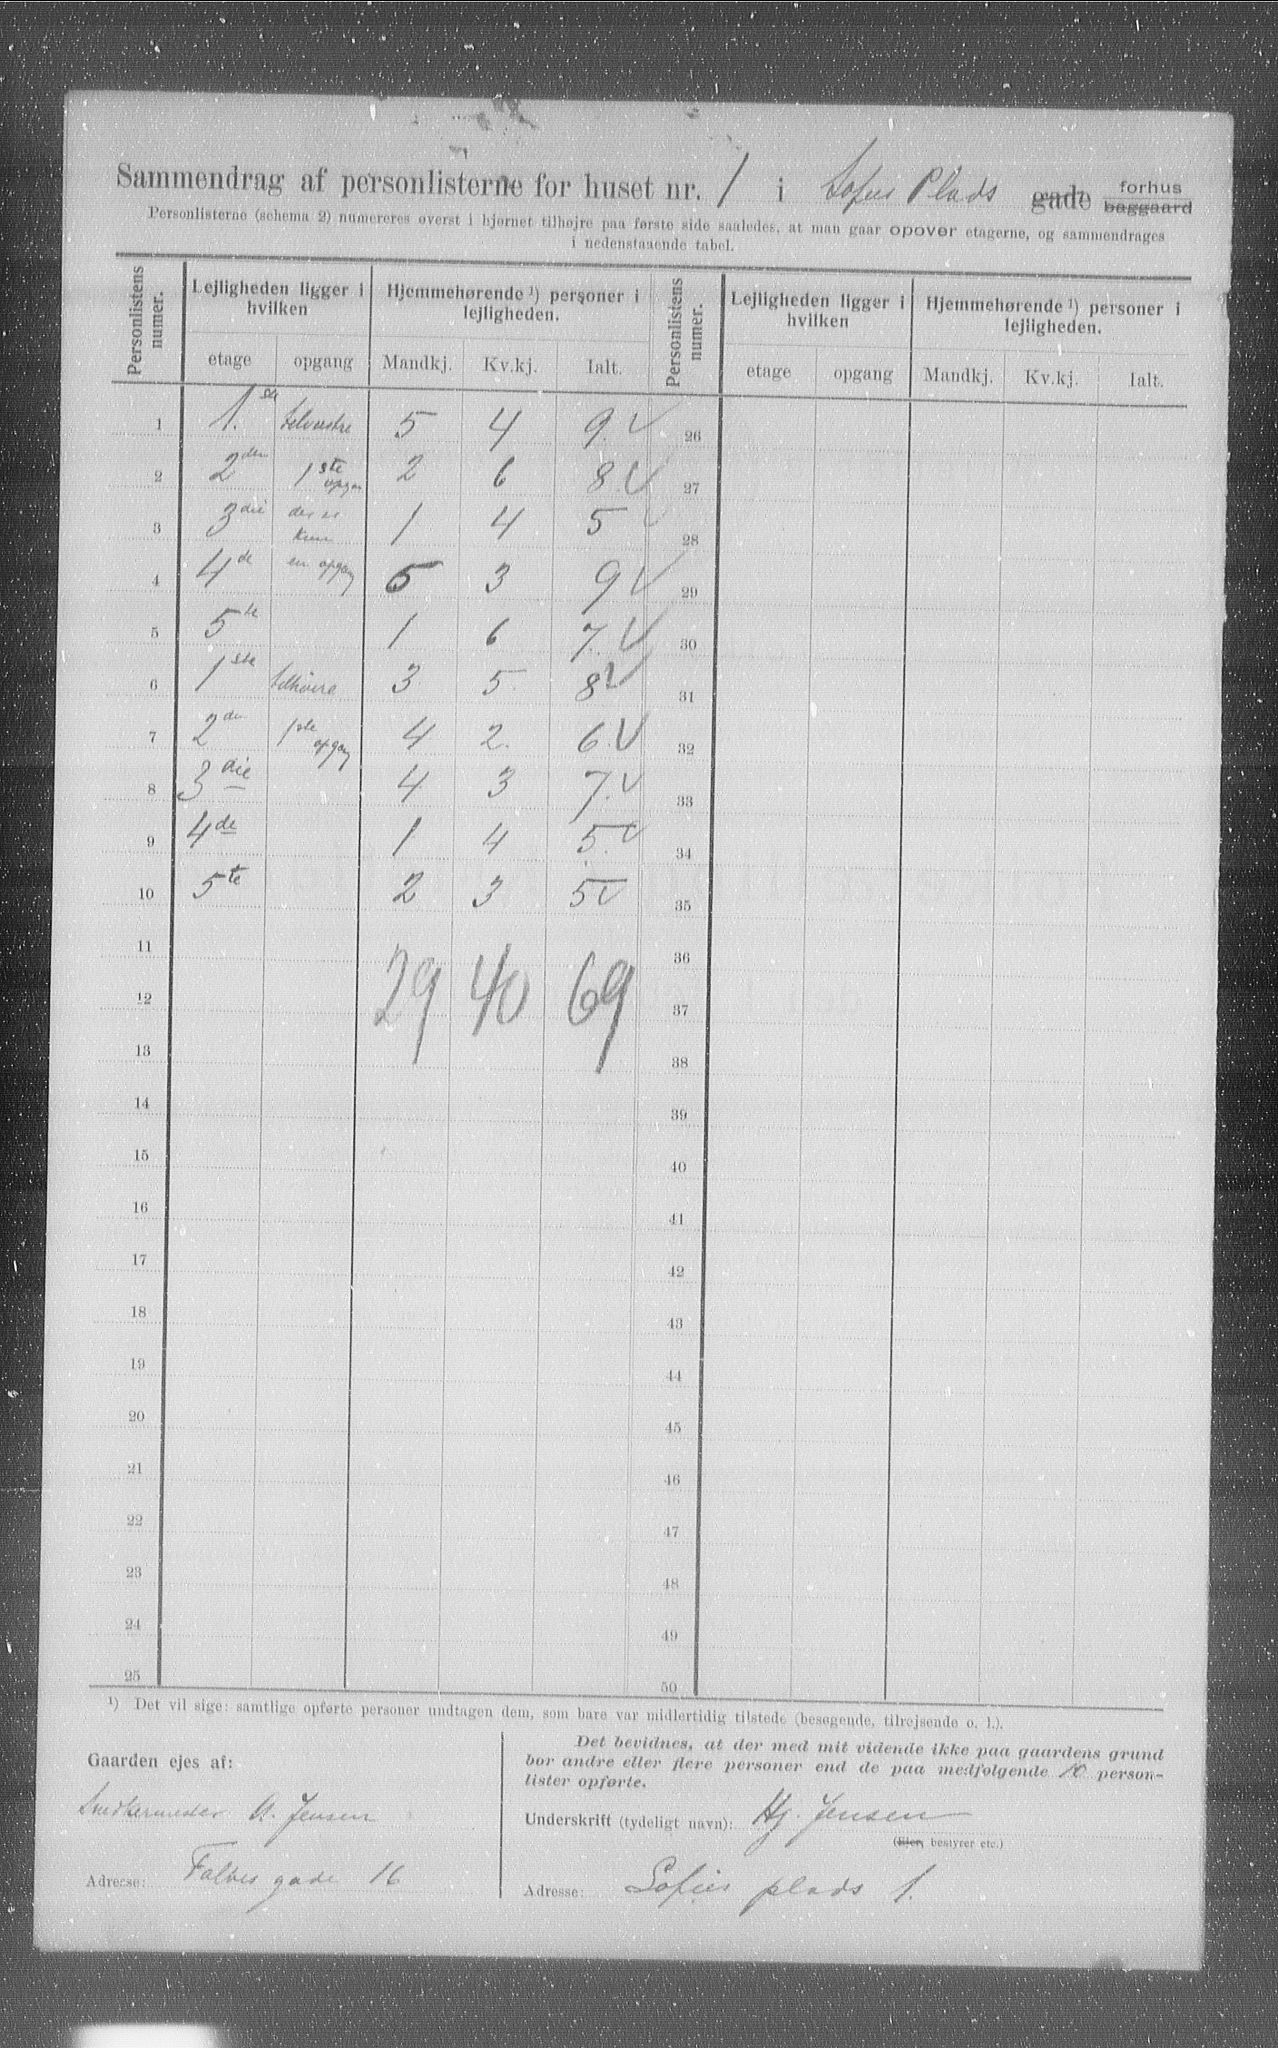 Sammendrag af personlisterne for huset nr. 1 i Sofies Plads gade forhus baggaard
Personlisterne (schema 2) numereres øverst i hjørnet tilhøjre paa første side saaledes, at man gaar opover etagerne, og sammendrages
i nedenstaaende tabel.
Personlistens numer. Lejligheden ligger i hvilken Hjemmehørende ¹) personer i lejligheden. Personlistens numer. Lejligheden ligger i hvilken Hjemmehørende ¹) personer i lejligheden.
etage opgang Mandkj. Kv.kj. Ialt. etage opgang Mandkj. Kv.kj. Ialt.
1 1. ste tilvenstre 5 4 9. √ 26
2 2 den 1 ste opgan 2 6 8 √ 27
3 3 die der er kun 1 4 5 √ 28
4 4 de en opgang 5 3 9 √ 29
5 5 te 1 6 7. √ 30
6 1 ste tilhöire 3 5 8 √ 31
7 2 den 1 ste opgang 4 2. 6. √ 32
8 3 die 4 3 7. √ 33
9 4 de 1 4 5. √ 34
10 5 te 2 3 5 √ 35
11 36
12 29 40 69 37
13 38
14 39
15 40
16 41
17 42
18 43
19 44
20 45
21 46
22 47
23 48
24 49
25 50
¹) Det vil sige: samtlige opførte personer undtagen dem, som bare var midlertidig tilstede (besøgende, tilrejsende o. l.).
Gaarden ejes af:
Snedkermester A. Jensen
Adresse: Falbes gade 16
Det bevidnes, at der med mit vidende ikke paa gaardens grund
bor andre eller flere personer end de paa medfølgende 10 person-
lister opførte.
Underskrift (tydeligt navn): Hj. Jensen
(Eier, bestyrer etc.)
Adresse: Sofies plads 1.